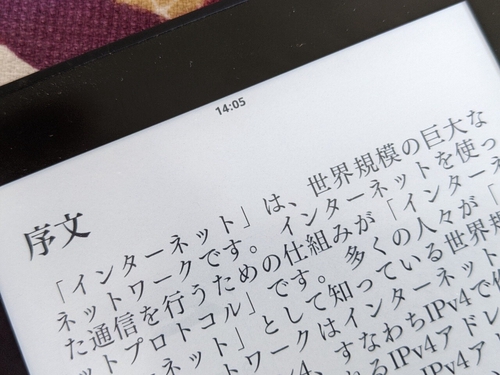 14:05
序文
「インターネット」は、世界規模の巨大な
ネットワークです。インターネットを使っ
た通信を行うための仕組みが「インターネ
ットプロトコル」です。多くの人々が「
ーネット」として知っている世界規
トワークはインターネット
4、すなわちIPv4で使
るIPv4アドレ
IPv4ア